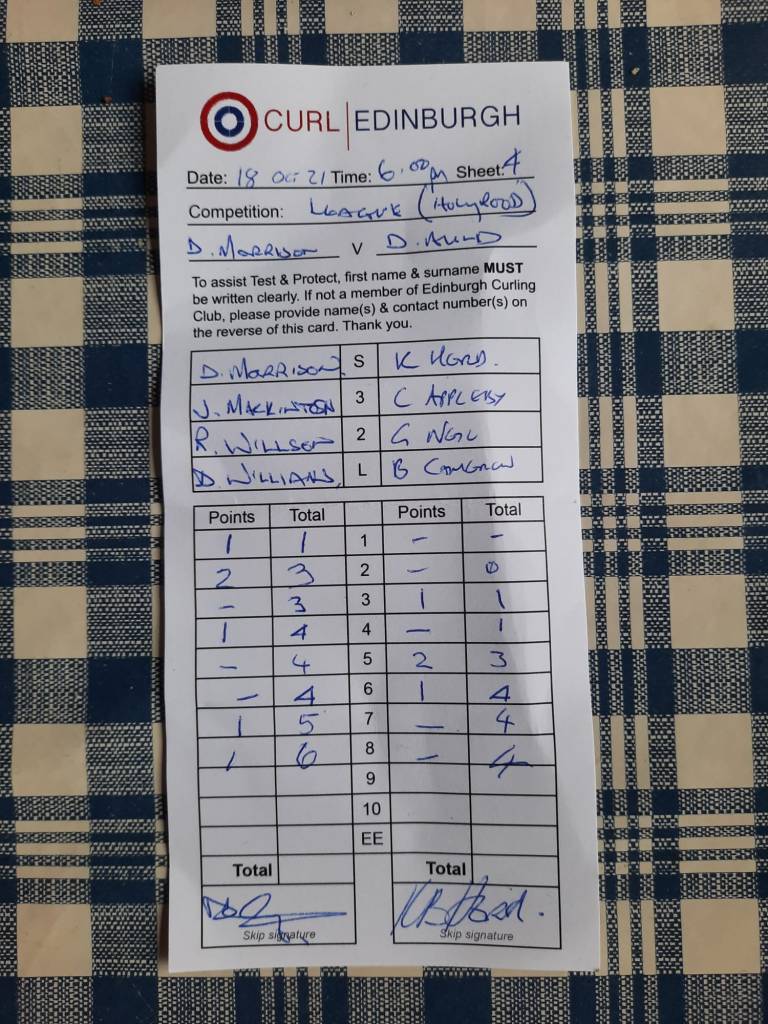 CURL EDINBURGH
Date: 18 Oct 21 Time: 6.00pm Sheet: 4
Competition: LEAGUE (HOLYROOD)
D. MORRISON V D. AULD
To assist Test & Protect, first name & surname MUST
be written clearly. If not a member of Edinburgh Curling
Club, please provide name(s) & contact number(s) on
the reverse of this card. Thank you.
D. MORRISON. S K HORD.
J. MACKINTOSH 3 C APPLEBY
R. WILLSON 2 G NEIL
D. WILLIAMS. L B CAMERON
Points Total Points Total
1 1 1 - -
2 3 2 - 0
- 3 3 1 1
1 4 4 - 1
- 4 5 2 3
- 4 6 1 4
1 5 7 - 4
1 6 8 - 4
9
10
EE
Total Total
Skip signature Skip signature